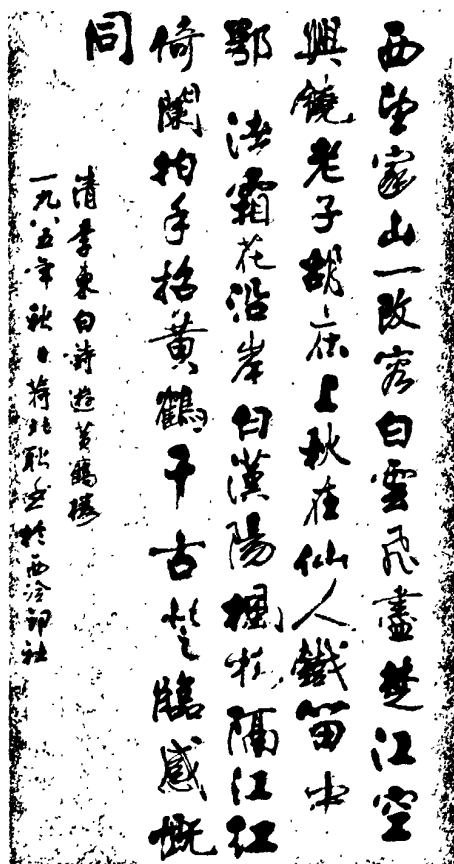 西望家山一改容白雲飛盡楚江空
興饒老子胡床上秋在仙人鐵笛中
鄂渚霜花沿岸白漢陽楓樹隔江紅
倚闌拍手招黃鶴千古登臨感慨
同
清李東白詩遊黃鶴樓
一九八五年秋日蔣北耿書於西泠印社